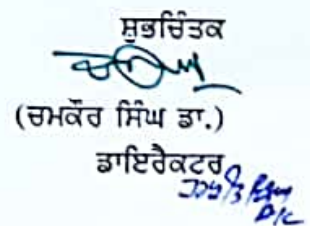 ਸ਼ੁਭਚਿੰਤਕ
(ਚਮਕੌਰ ਸਿੰਘ ਡਾ.)
ਡਾਇਰੈਕਟਰ